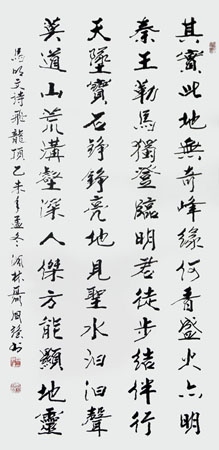 其實此地無奇峰緣何香盛火亦明
秦王勒馬獨登臨明君徒步結伴行
天墜寶石錚錚亮地見聖水汩汩聲
莫道山荒溝壑深人傑方能顯地靈
馬明文詩飛龍頂己未年孟冬林書